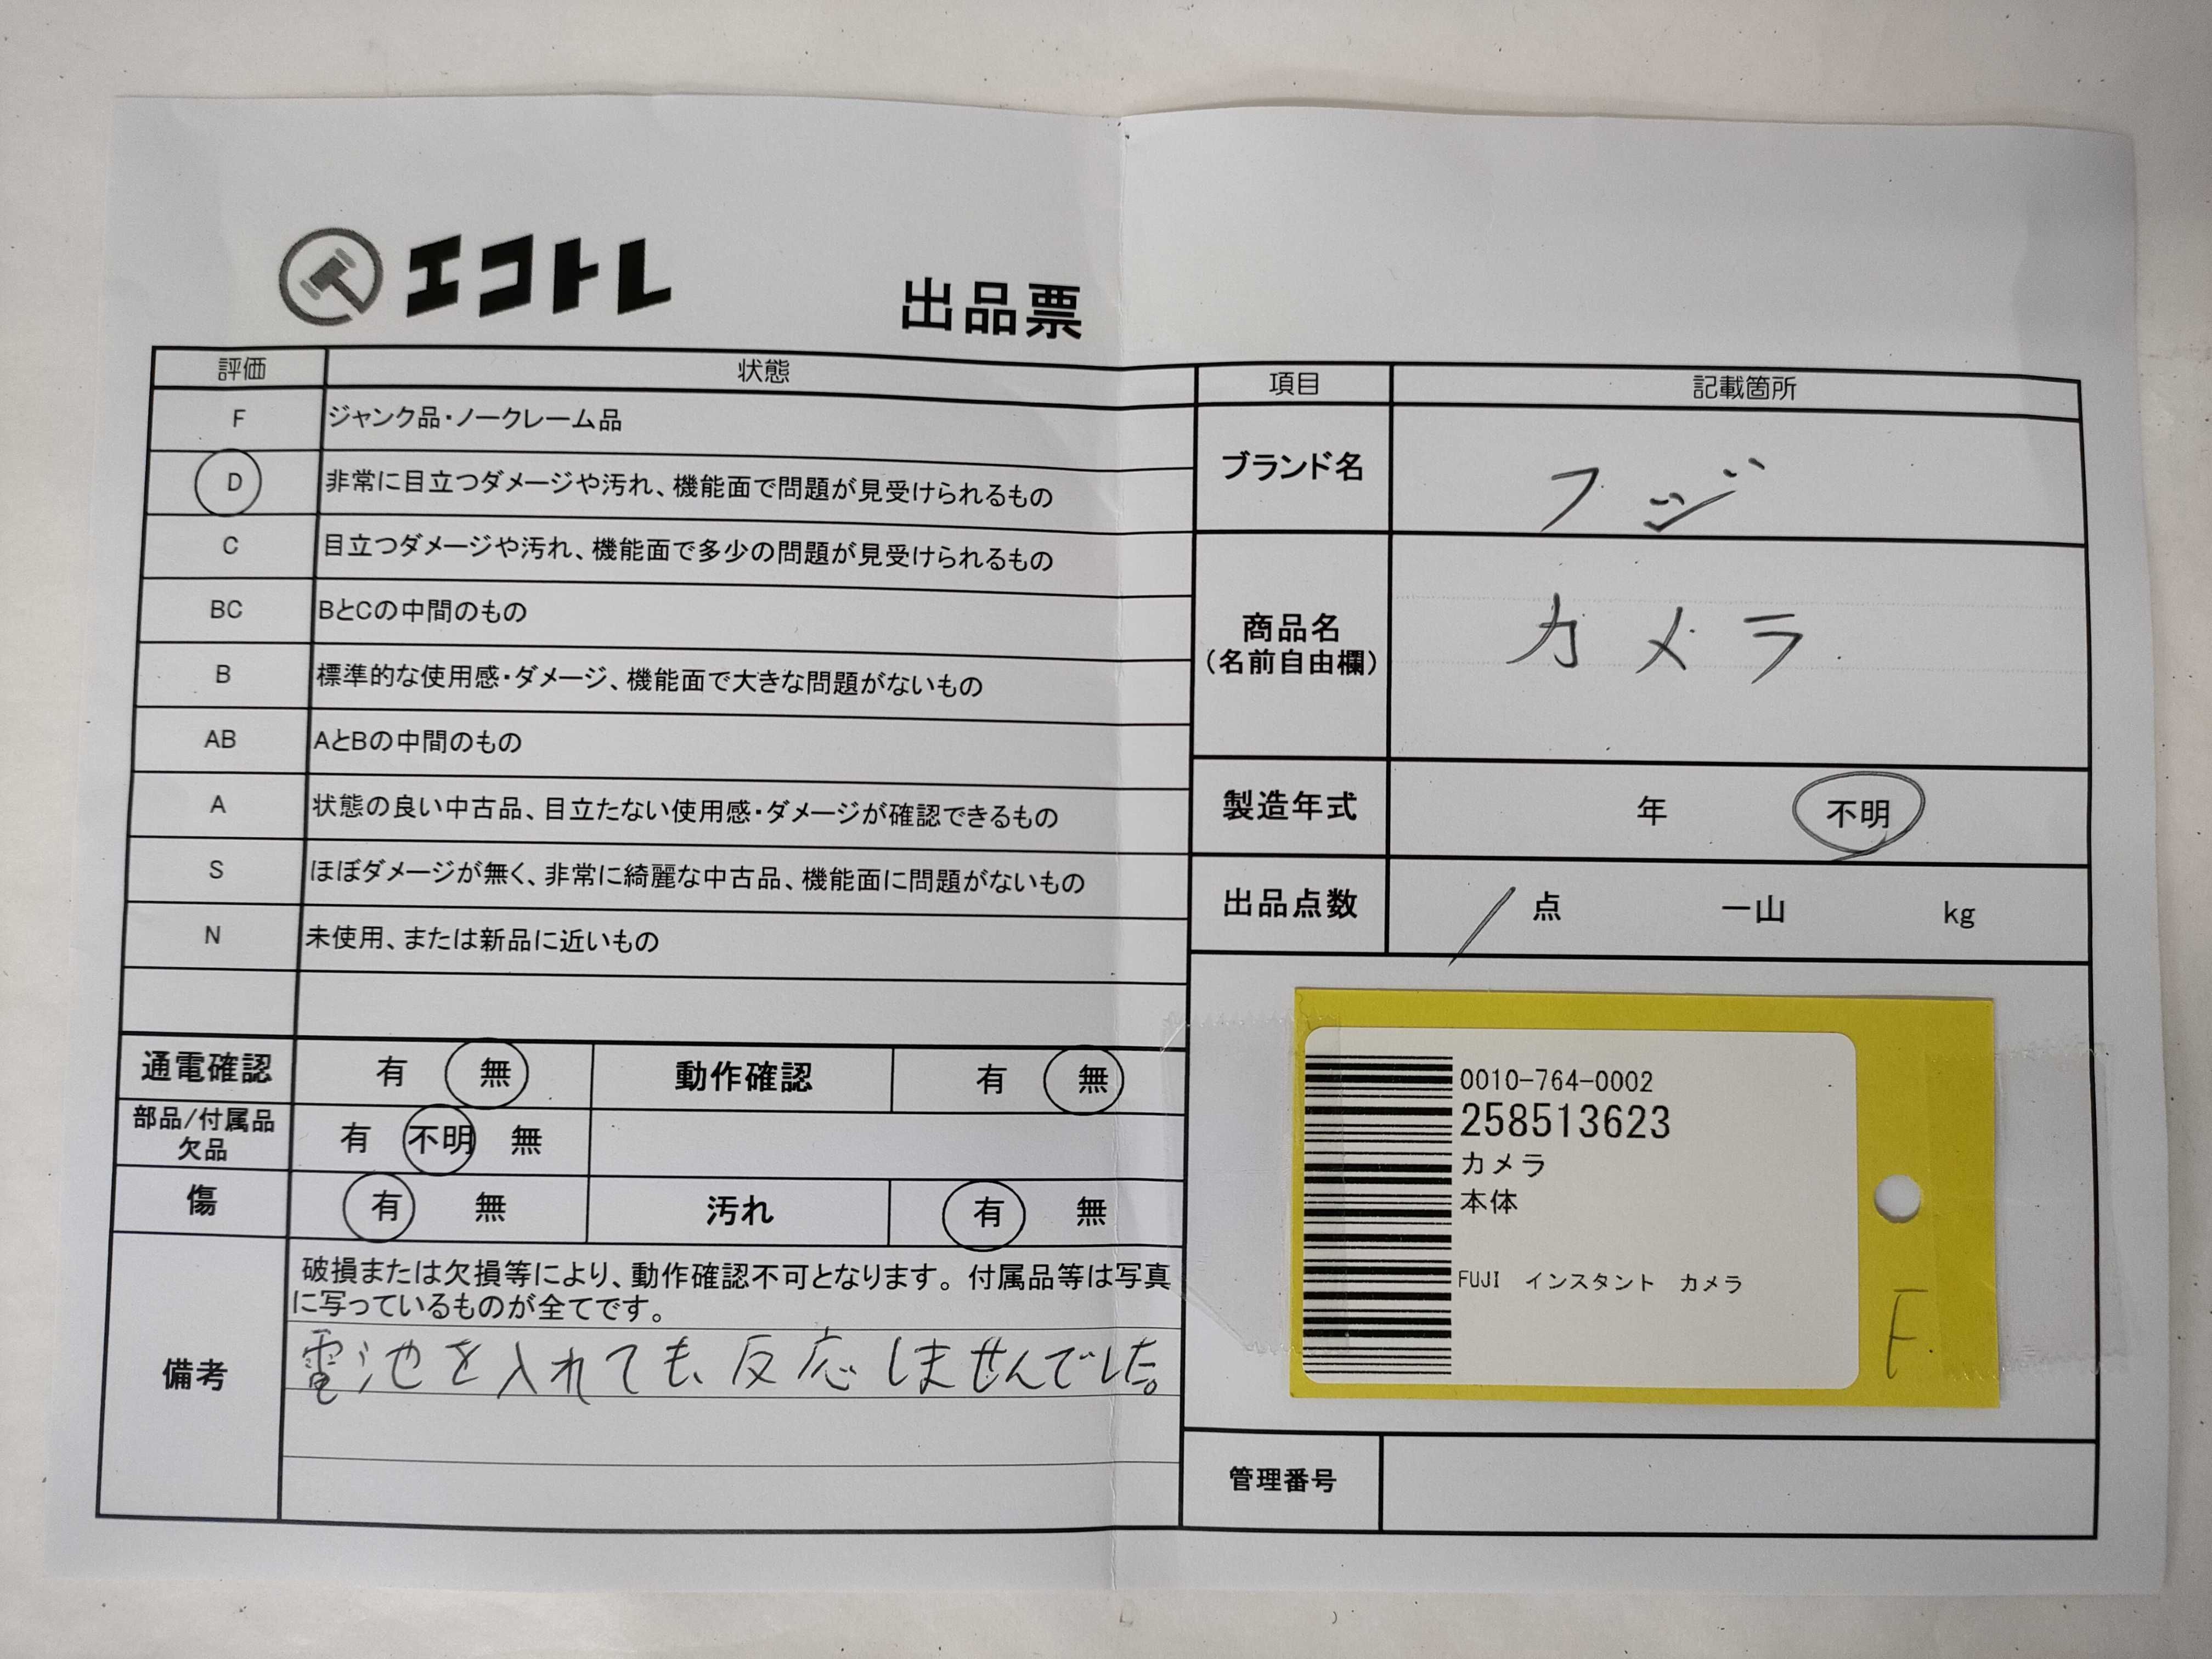 エコトレ
出品票
評価 状態
F ジャンク品・ノークレーム品
D 非常に目立つダメージや汚れ、機能面で問題が見受けられるもの
C 目立つダメージや汚れ、機能面で多少の問題が見受けられるもの
BC BとCの中間のもの
B 標準的な使用感・ダメージ、機能面で大きな問題がないもの
AB AとBの中間のもの
A 状態の良い中古品、目立たない使用感・ダメージが確認できるもの
S ほぼダメージが無く、非常に綺麗な中古品、機能面に問題がないもの
N 未使用、または新品に近いもの
通電確認 有 無 動作確認 有 無
部品/付属品
欠品 有 不明 無
傷 有 無 汚れ 有 無
備考
破損または欠損等により、動作確認不可となります。付属品等は写真
に写っているものが全てです。
電池を入れても、反応しませんでした。
項目 記載箇所
ブランド名 フジ
商品名
(名前自由欄)
カメラ
製造年式 年 不明
出品点数 1点 一山 kg
0010-764-0002
258513623
カメラ
本体
FUJI インスタント カメラ
F
管理番号